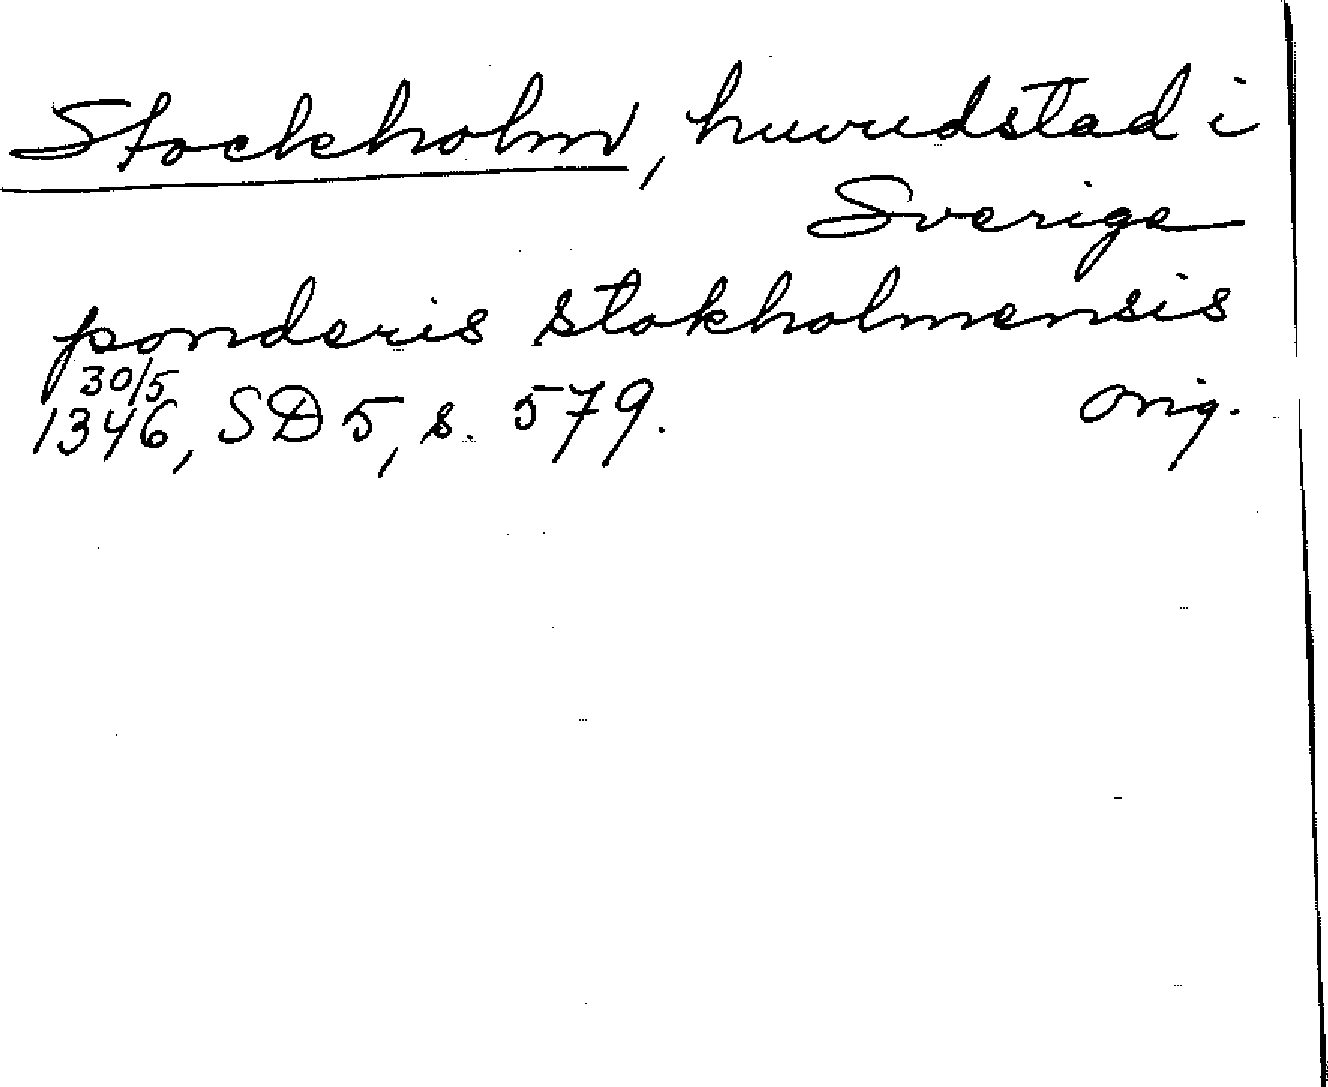 Stockholm, huvudstad i
Sverige
ponderis stokholmensis
30/5
1346, SD 5, s. 579. Orig.